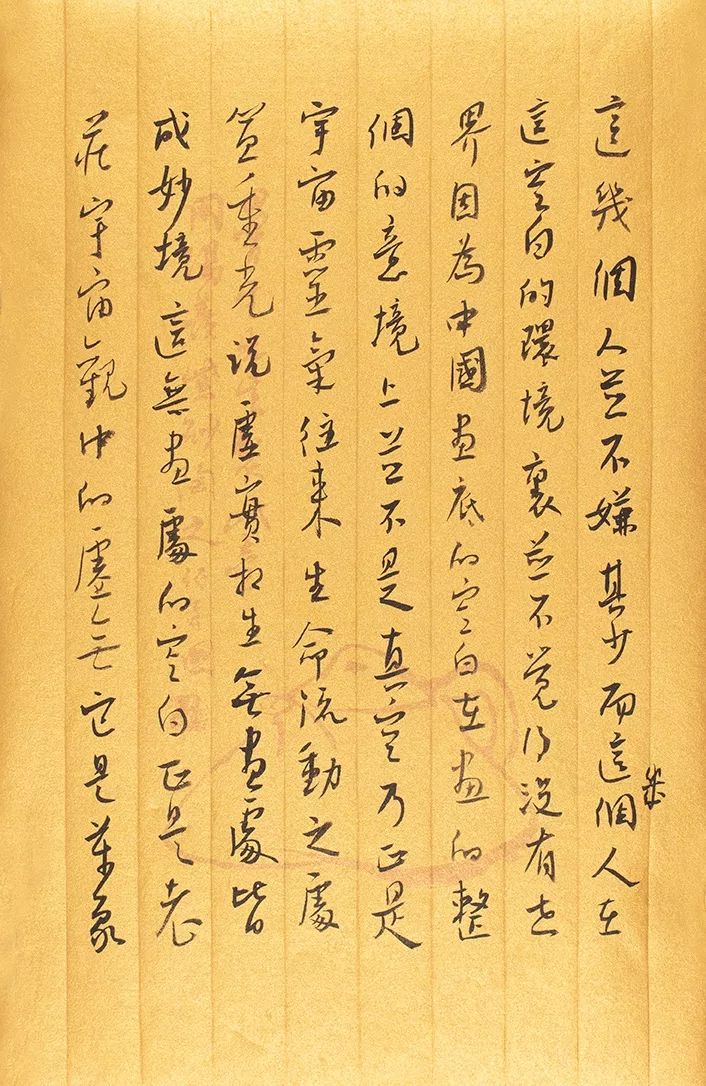 這幾個人並不嫌其少而這幾個人在
這空白的環境裏並不覺得沒有世
界因為中國畫底的空白在畫的整
個的意境上並不是真空乃正是
宇宙靈氣往來生命流動之處
笪重光説虛實相生無畫處皆
成妙境這無畫處的空白正是老
莊宇宙觀中的虛無它是萬象